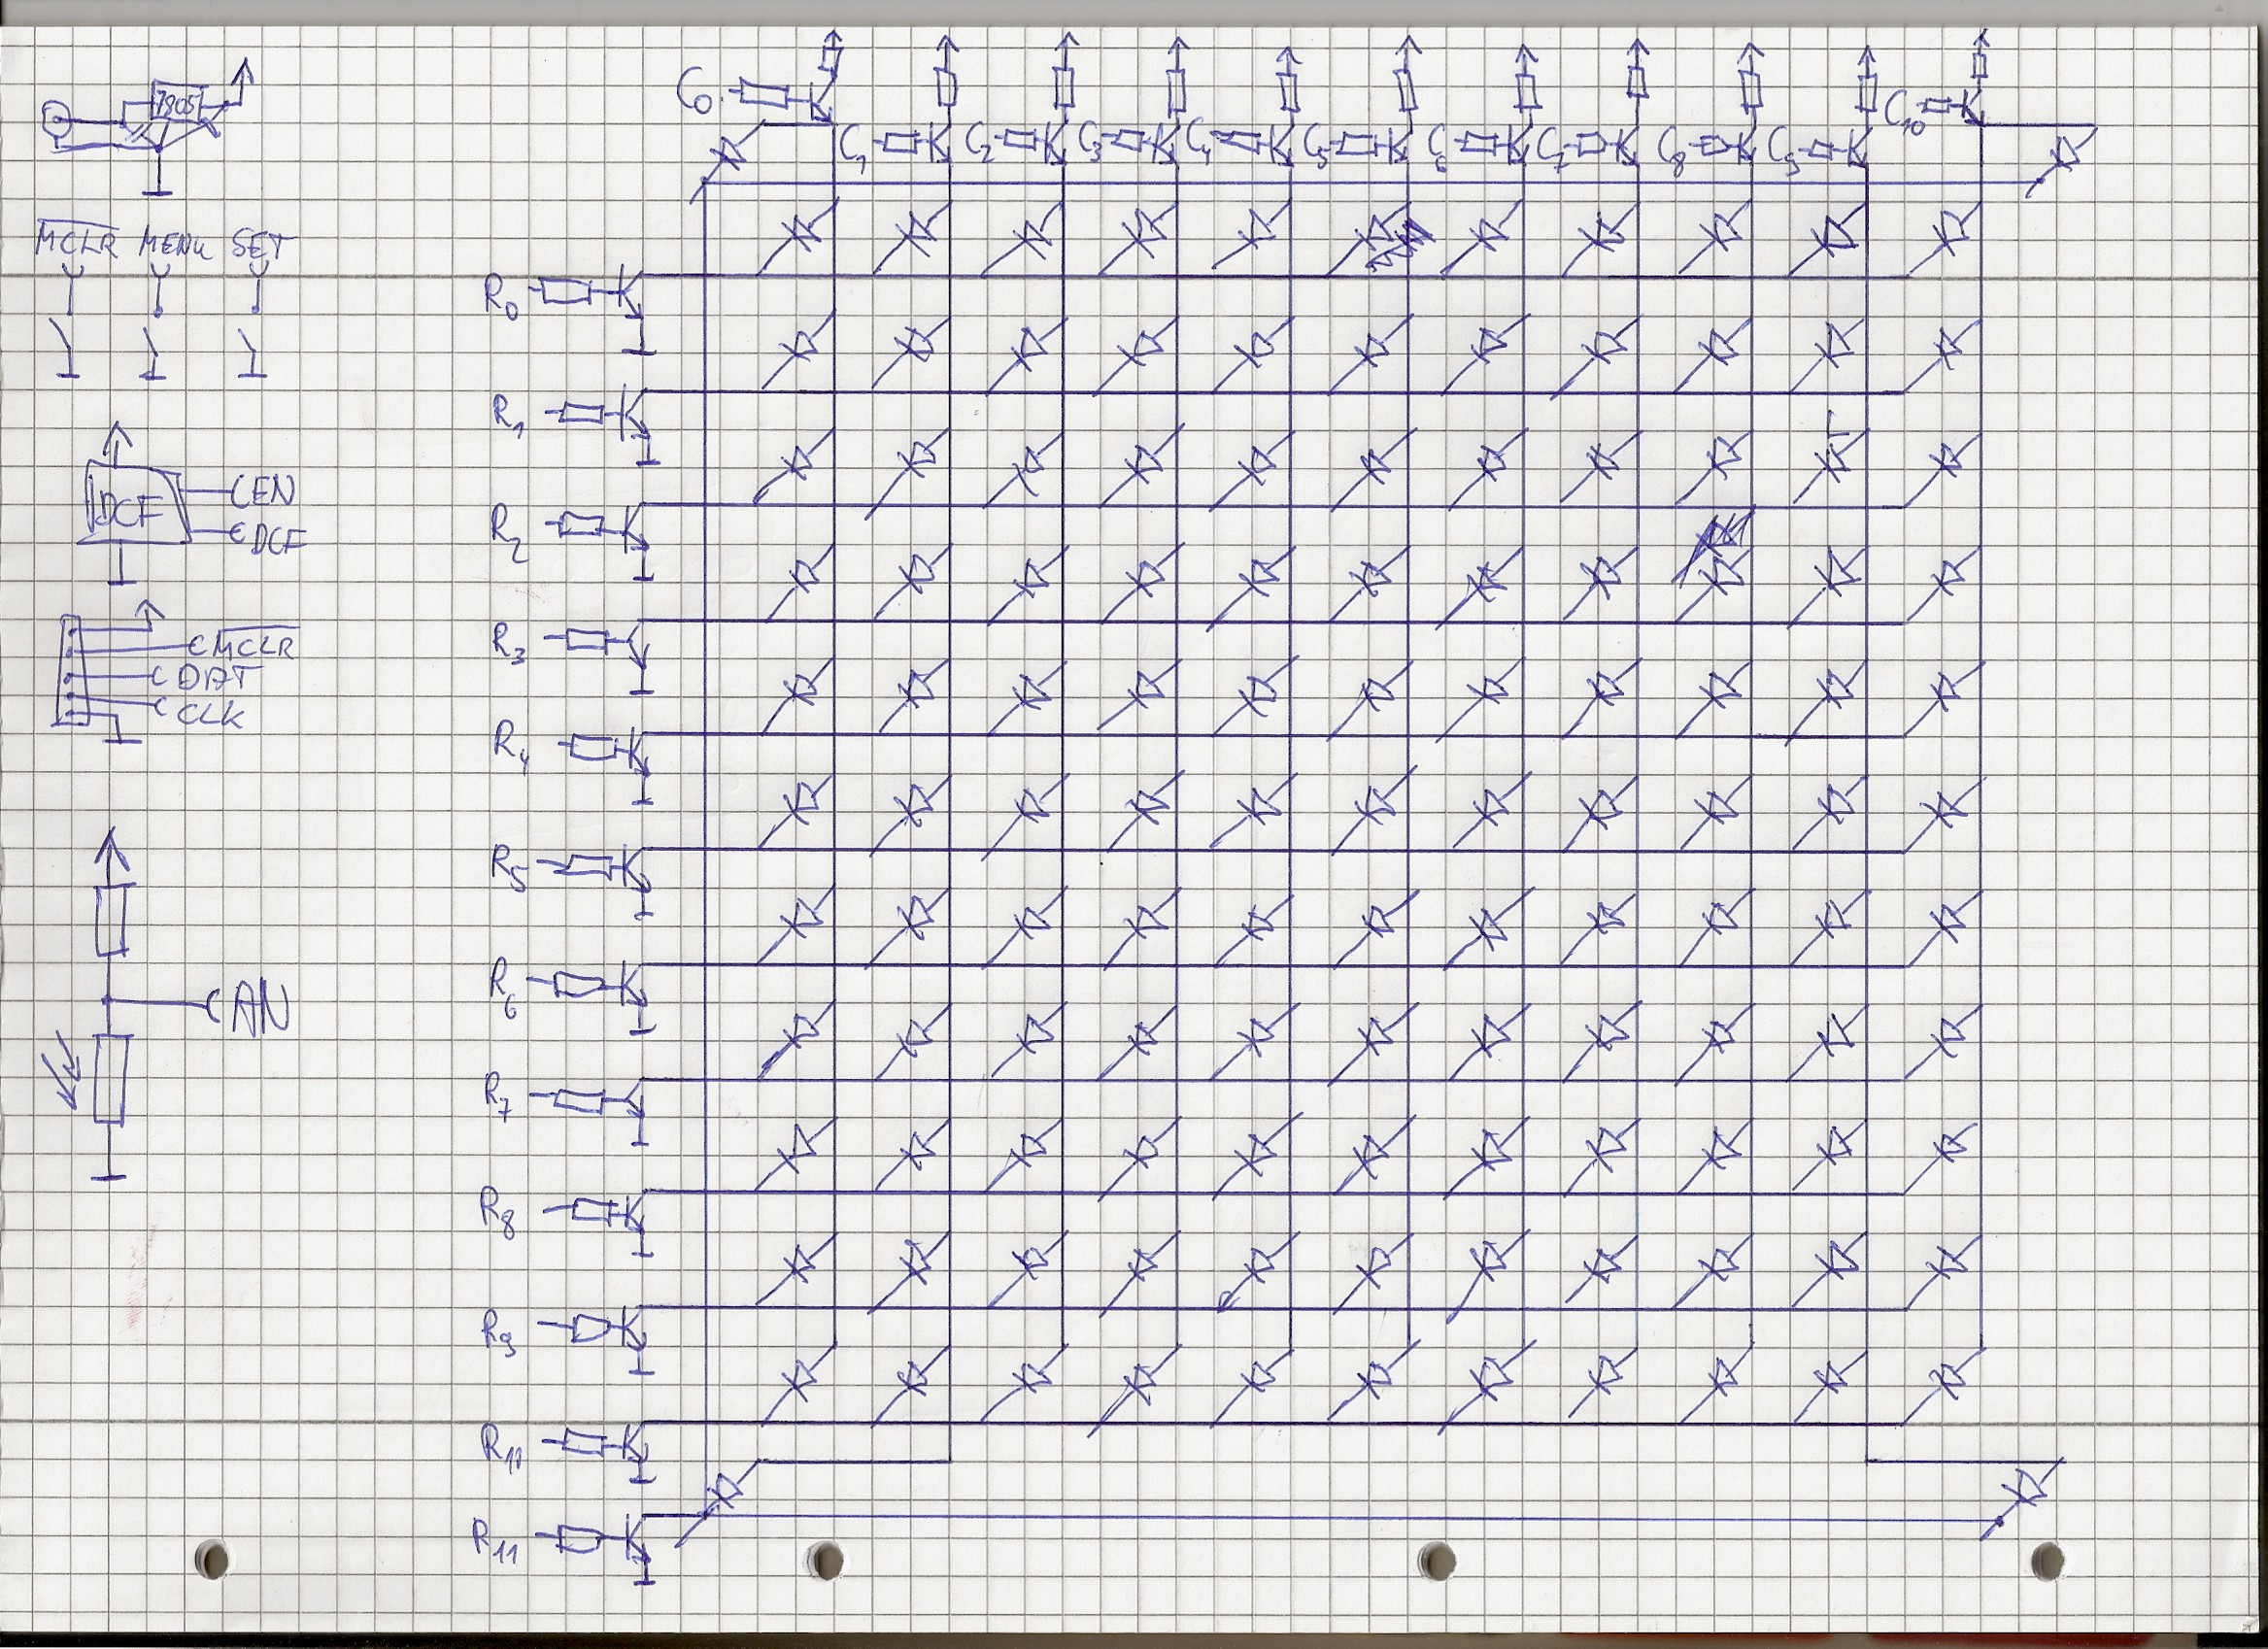 7805
MCLR MENU SET
DCF
EN
DCF
MCLR
DAT
CLK
AN
C0 C1 C2 C3 C4 C5 C6 C7 C8 C9 C10
R0
R1
R2
R3
R4
R5
R6
R7
R8
R9
R10
R11